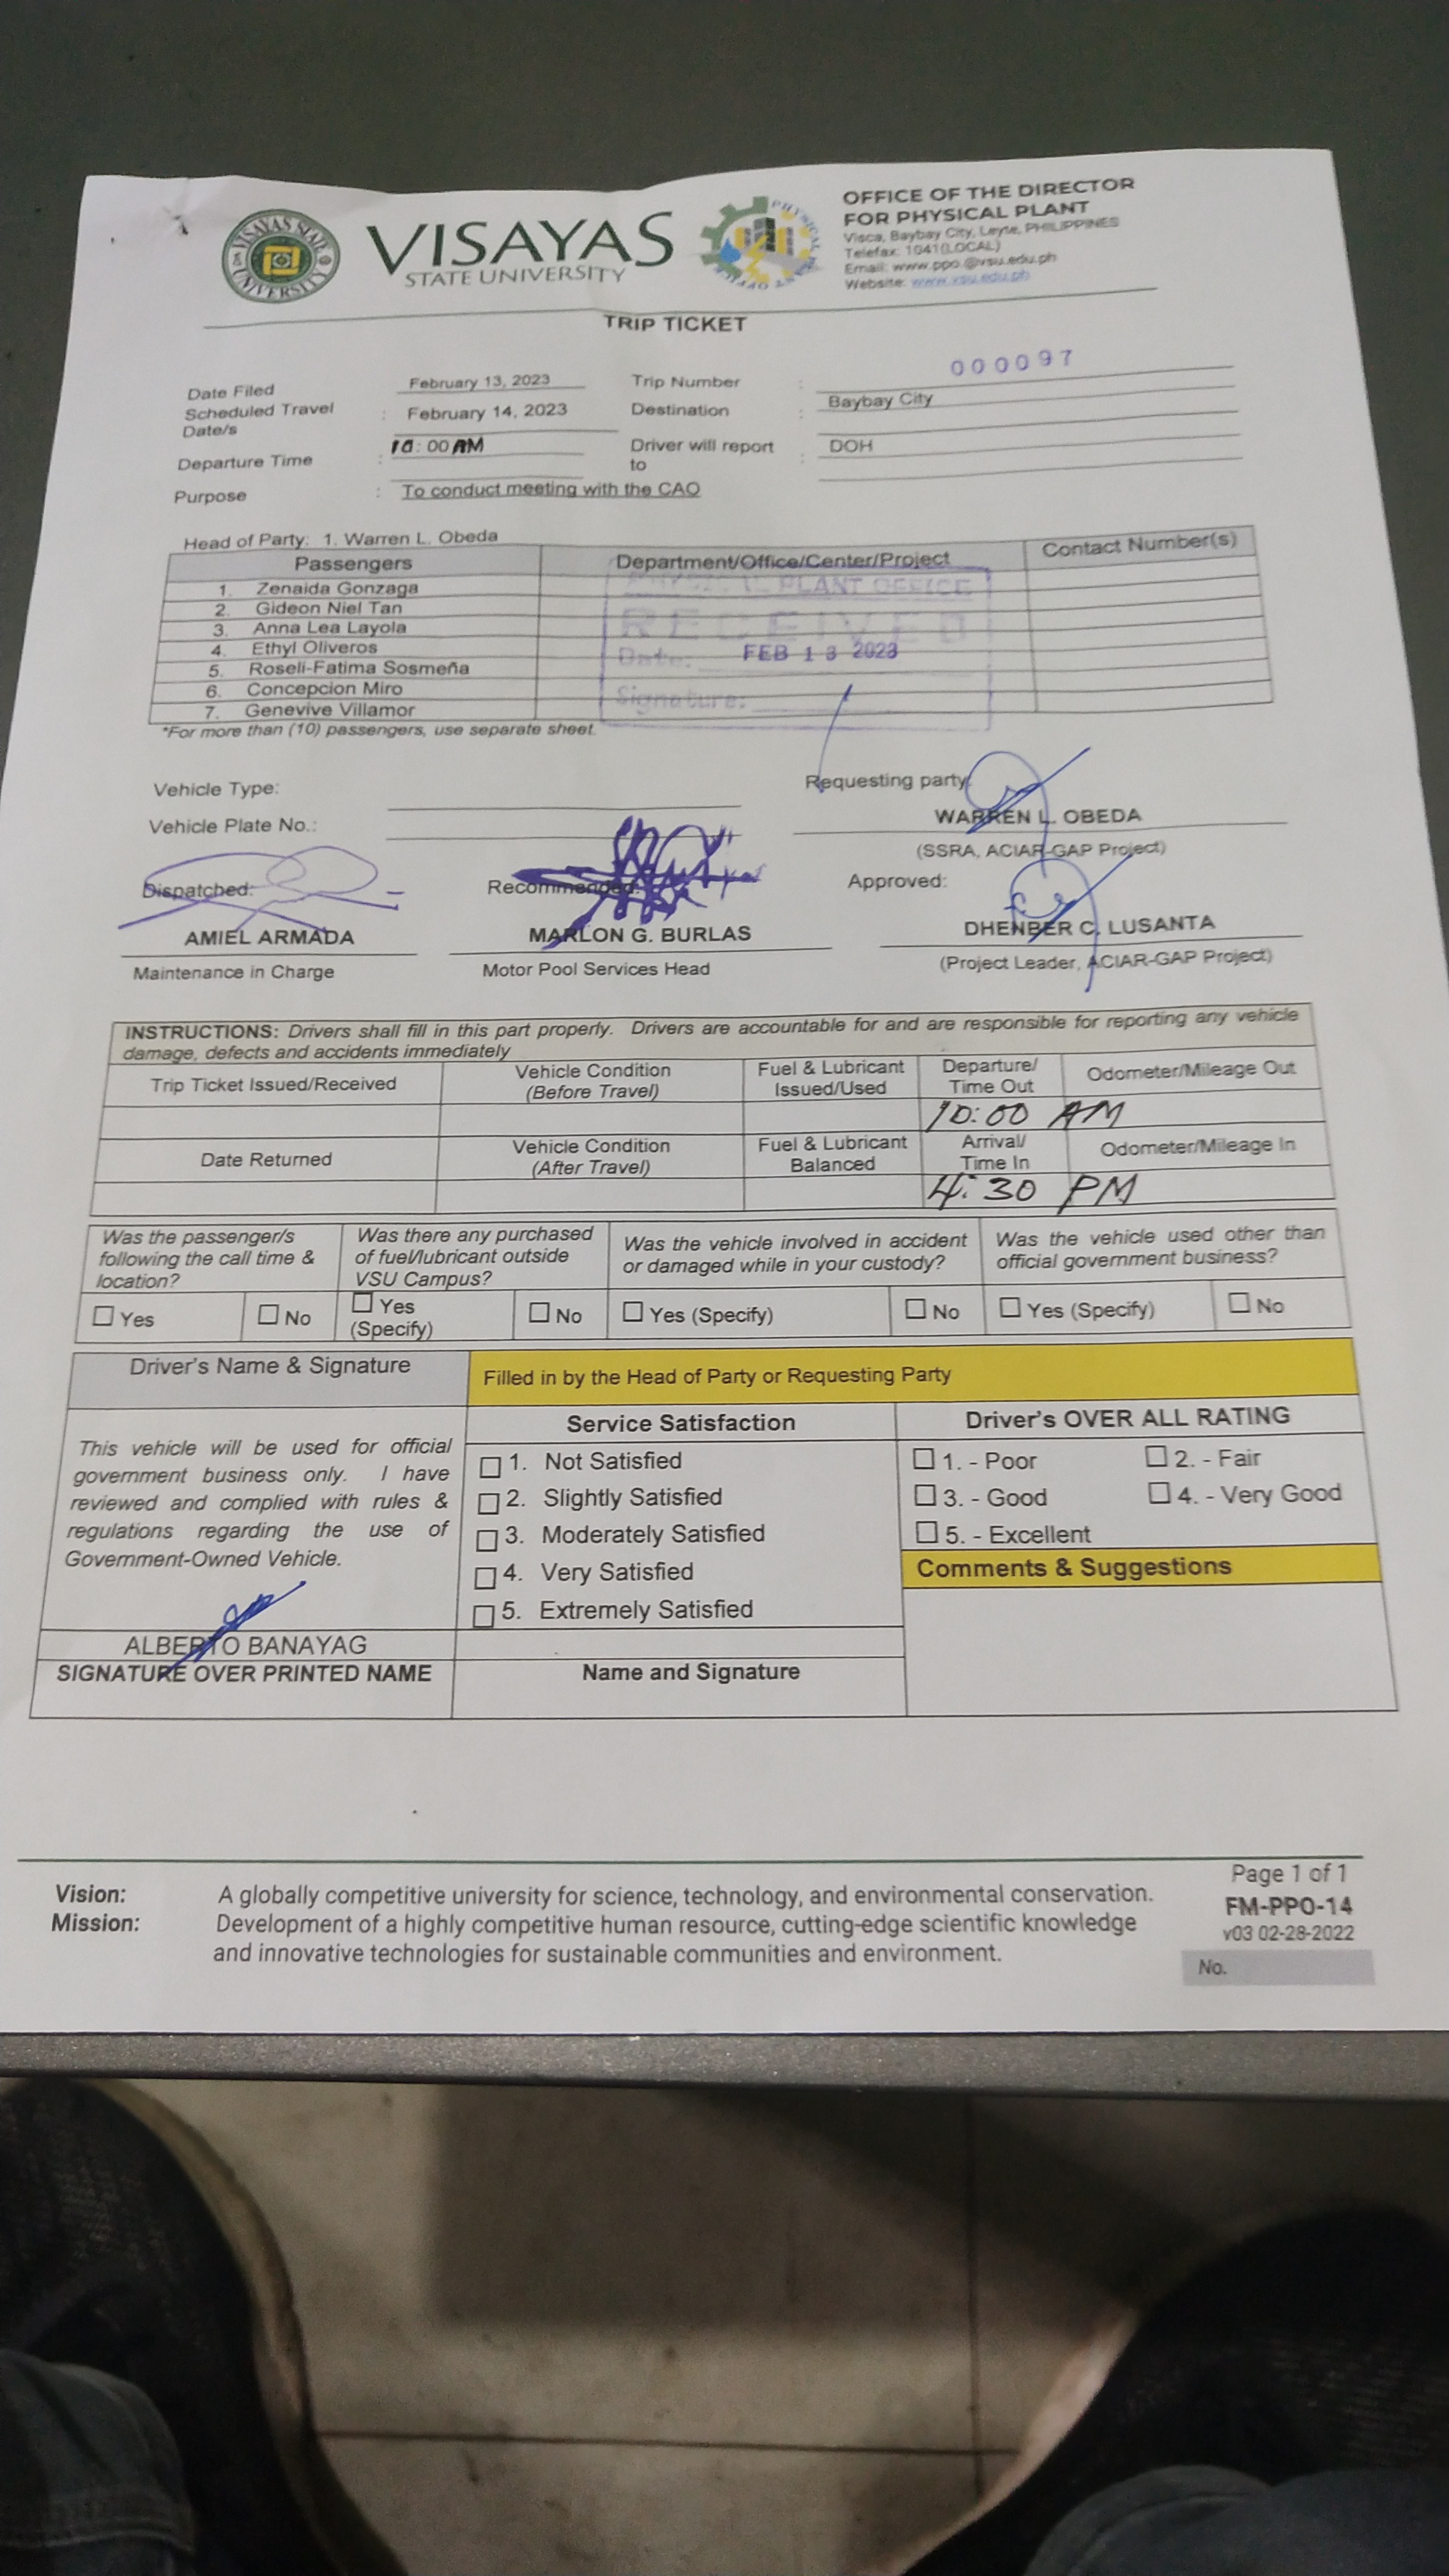 VISAYAS STATE UNIVERSITY
VISAYAS
STATE UNIVERSITY
PHYSICAL PLANT OFFICE
OFFICE OF THE DIRECTOR
FOR PHYSICAL PLANT
Visca, Baybay City, Leyte, PHILIPPINES
Telefax: 1041(LOCAL)
Email: www.ppo.@vsu.edu.ph
Website: www.vsu.edu.ph
TRIP TICKET
000097
Date Filed February 13, 2023 Trip Number :
Scheduled Travel Date/s : February 14, 2023 Destination : Baybay City
Departure Time : 10:00 AM Driver will report to : DOH
Purpose : To conduct meeting with the CAO
Head of Party: 1. Warren L. Obeda
Passengers Department/Office/Center/Project Contact Number(s)
1. Zenaida Gonzaga
2. Gideon Niel Tan
3. Anna Lea Layola
4. Ethyl Oliveros
5. Roseli-Fatima Sosmeña
6. Concepcion Miro
7. Genevive Villamor
PHYSICAL PLANT OFFICE
RECEIVED
Date: FEB 13 2023
Signature:
*For more than (10) passengers, use separate sheet.
Vehicle Type:
Vehicle Plate No.:
Requesting party:
WARREN L. OBEDA
(SSRA, ACIAR-GAP Project)
Dispatched: Recommended: Approved:
AMIEL ARMADA MARLON G. BURLAS DHENBER C. LUSANTA
Maintenance in Charge Motor Pool Services Head (Project Leader, ACIAR-GAP Project)
INSTRUCTIONS: Drivers shall fill in this part properly. Drivers are accountable for and are responsible for reporting any vehicle
damage, defects and accidents immediately
Trip Ticket Issued/Received Vehicle Condition (Before Travel) Fuel & Lubricant Issued/Used Departure/ Time Out Odometer/Mileage Out
10:00 AM
Date Returned Vehicle Condition (After Travel) Fuel & Lubricant Balanced Arrival/ Time In Odometer/Mileage In
4:30 PM
Was the passenger/s following the call time & location? Was there any purchased of fuel/lubricant outside VSU Campus? Was the vehicle involved in accident or damaged while in your custody? Was the vehicle used other than official government business?
Yes No Yes (Specify) No Yes (Specify) No Yes (Specify) No
Driver's Name & Signature Filled in by the Head of Party or Requesting Party
This vehicle will be used for official
government business only. I have
reviewed and complied with rules &
regulations regarding the use of
Government-Owned Vehicle.
ALBERTO BANAYAG
SIGNATURE OVER PRINTED NAME
Service Satisfaction
1. Not Satisfied
2. Slightly Satisfied
3. Moderately Satisfied
4. Very Satisfied
5. Extremely Satisfied
Name and Signature
Driver's OVER ALL RATING
1. - Poor 2. - Fair
3. - Good 4. - Very Good
5. - Excellent
Comments & Suggestions
Vision: A globally competitive university for science, technology, and environmental conservation.
Mission: Development of a highly competitive human resource, cutting-edge scientific knowledge
and innovative technologies for sustainable communities and environment.
Page 1 of 1
FM-PPO-14
v03 02-28-2022
No.